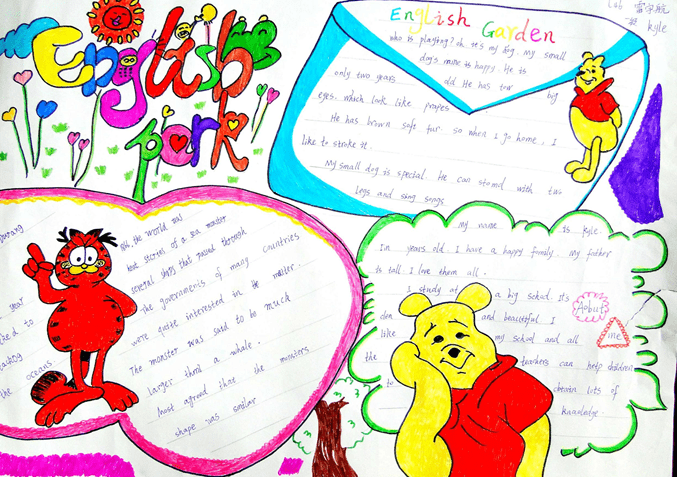 English
pork
English Garden
who is playing? oh it's my dog. My small
dog's name is happy. He is
only two years old He has tow big
eyes. which look like
He has brown soft fur. so when I go home, I
like to stroke it.
My small dog is special. He can stand with tws
legs and sing songs
6
kyle
the world was
stories of a sea monster
several ships that passed through
The governments of many countries
were quite interested in the matter.
The monster was said to be much
larger than a whale.
Most agreed that the monsters
shape was similar
year
to
the oceans.
my name is kyle.
In years old. I have a happy family. My father
is tall. I love them all.
I study at a big school. Its
den and beautiful. I
like my school and all
the teachers can help children
to obtain lots of
knowledge.
Aobut
me